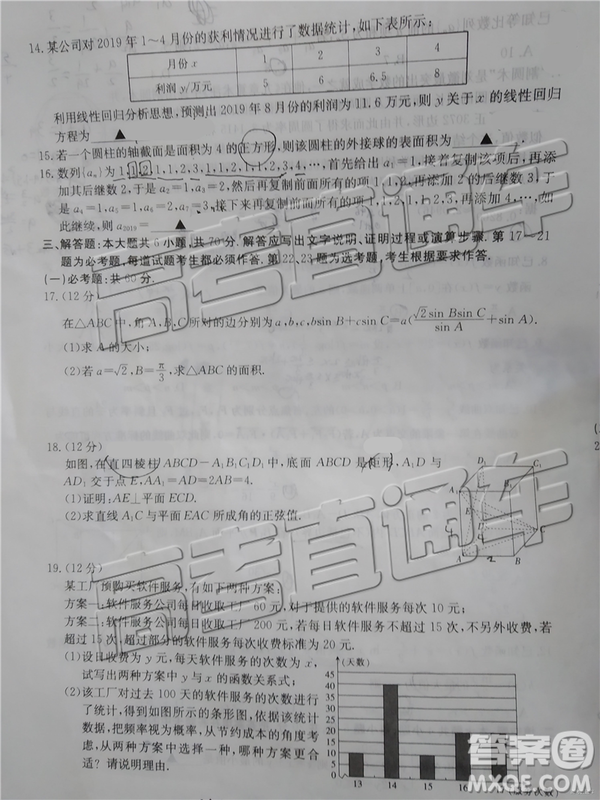 14.某公司对2019年1~4月份的获利情况进行了数据统计,如下表所示:
月份x 1 2 3 4
利润y/万元 5 6 6.5 8
利用线性回归分析思想,预测出2019年8月份的利润为11.6万元,则y关于x的线性回归
方程为 ▲ .
15.若一个圆柱的轴截面是面积为4的正方形,则该圆柱的外接球的表面积为 ▲ .
16.数列{aₙ}为1,1,2,1,1,2,3,1,1,2,1,1,2,3,4,…,首先给出a₁=1,接着复制该项后,再添
加其后继数2,于是a₂=1,a₃=2,然后再复制前面所有的项1,1,2,再添加2的后继数3,于
是a₄=1,a₅=1,a₆=2,a₇=3,接下来再复制前面所有的项1,1,2,1,1,2,3,再添加4,…,如
此继续,则a₂₀₁₉= ▲ .
三、解答题:本大题共6小题,共70分.解答应写出文字说明、证明过程或演算步骤.第17~21
题为必考题,每道试题考生都必须作答.第22、23题为选考题,考生根据要求作答.
(一)必考题:共60分.
17.(12分)
在△ABC中,角A,B,C所对的边分别为a,b,c,bsin B+csin C=a(√2sin Bsin C/sin A+sin A).
(1)求A的大小;
(2)若a=√2,B=π/3,求△ABC的面积.
18.(12分)
如图,在直四棱柱ABCD-A₁B₁C₁D₁中,底面ABCD是矩形,A₁D与
AD₁交于点E,AA₁=AD=2AB=4.
(1)证明:AE⊥平面ECD.
(2)求直线A₁C与平面EAC所成角的正弦值.
19.(12分)
某工厂预购买软件服务,有如下两种方案:
方案一:软件服务公司每日收取工厂60元,对于提供的软件服务每次10元;
方案二:软件服务公司每日收取工厂200元,若每日软件服务不超过15次,不另外收费,若
超过15次,超过部分的软件服务每次收费标准为20元.
(1)设日收费为y元,每天软件服务的次数为x,
试写出两种方案中y与x的函数关系式;
(2)该工厂对过去100天的软件服务的次数进行
了统计,得到如图所示的条形图,依据该统计
数据,把频率视为概率,从节约成本的角度考
虑,从两种方案中选择一种,哪种方案更合
适?请说明理由.
(天数)
45
40
35
30
25
20
15
10
5
0
13 14 15 16
高考直通车
答案圈
MXQE.COM